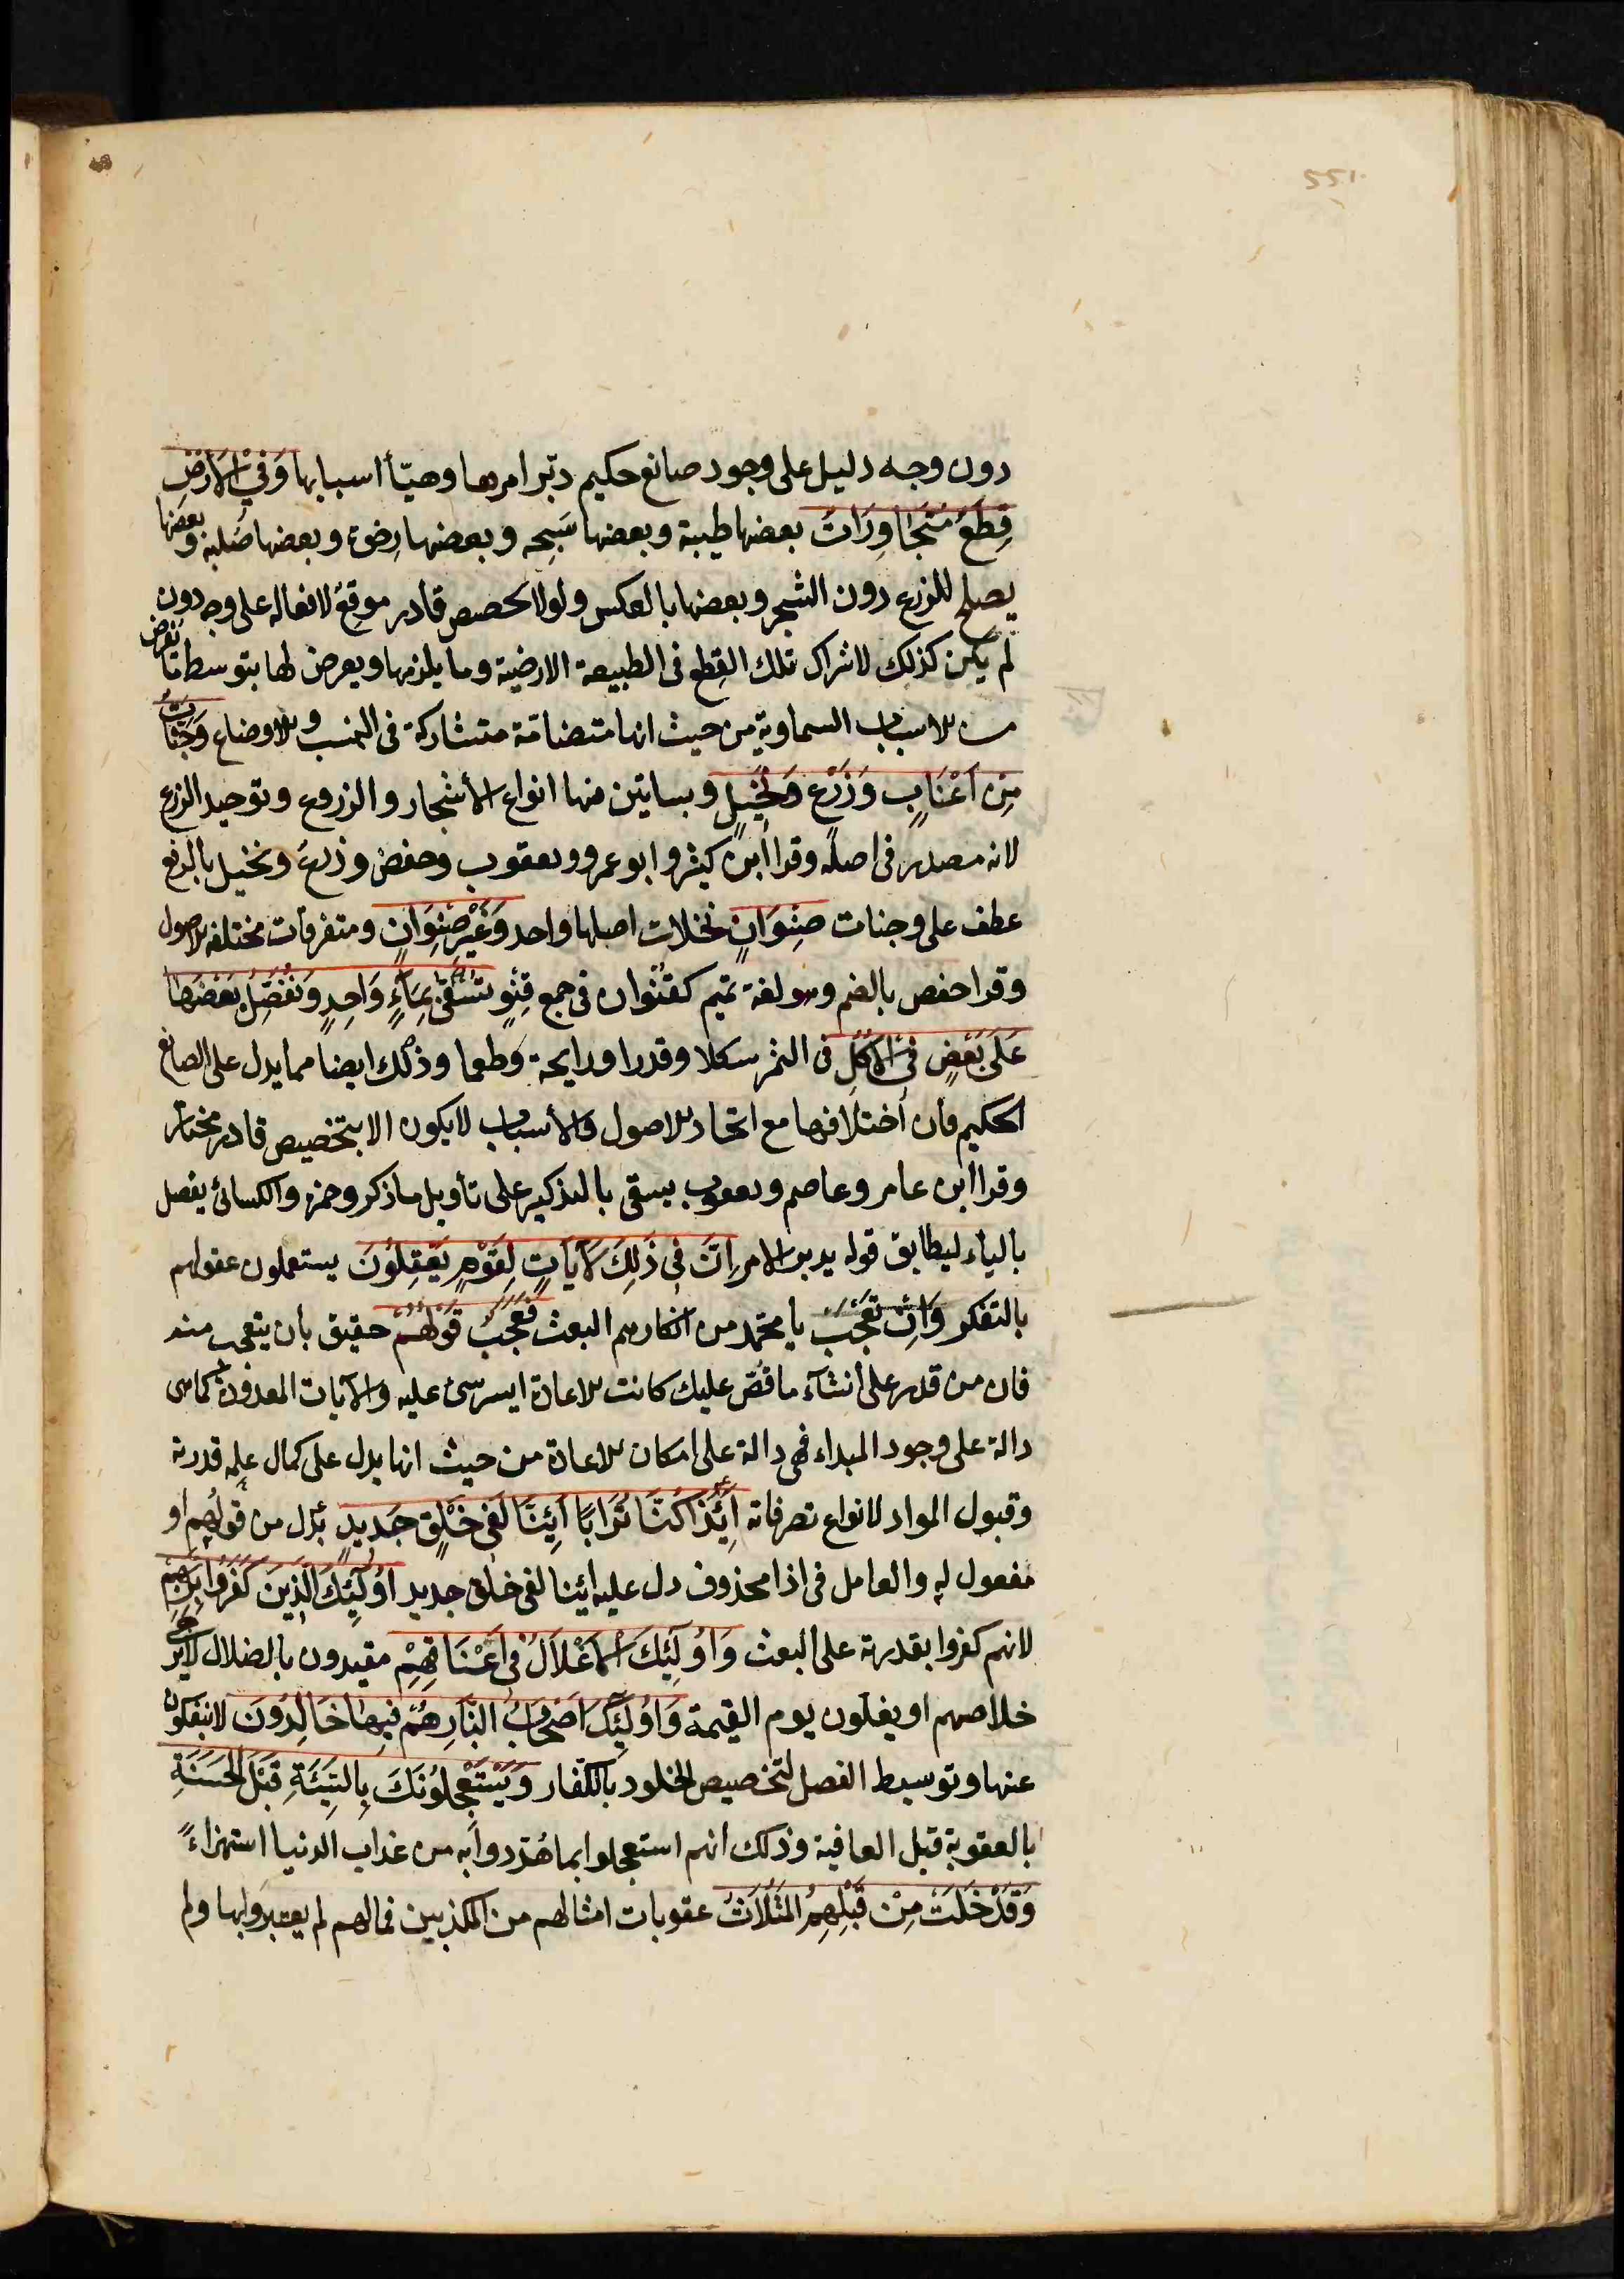 دون وجه دليل على وجود صانع حكيم دبّر امرها وهيّأ اسبابها وَفِي الْاَرْضِ
قِطَعٌ مُتَجَاوِرَاتٌ بعضها طيبة وبعضها سَبِخه وبعضها رِخوة وبعضها صُلبه وبعضها
يصلح للزرع دون الشجر وبعضها بالعكس ولولا تخصيص قادر موقعٌ لافعاله على وجه دون
لم يكن كذلك لاشتراك تلك القِطع فى الطبيعة الارضية وما يلزمها ويعرض لها بتوسط ما تعرض
من الاسباب السماوية من حيث انها متضامّة متشاركة فى النسب والاوضاع وَجَنَّاتٌ
مِنْ اَعْنَابٍ وَزَرْعٍ وَنَخِيلٍ وبساتين منها انواع الأشجار والزروع وتوحيد الزرع
لانه مصدر فى اصله وقرا ابن كثير وابو عمرو ويعقوب وحفص وزرعٌ ونخيل بالرفع
عطف على وجنات صِنْوَانٍ نخلات اصلها واحد وَغَيْرِ صِنْوَانٍ ومتفرقات مختلفه الاصول
وقرا حفص بالضم وهو لغة تميم كقنوان فى جمع قِنْوٍ تُسْقَى بِمَآءٍ وَاحِدٍ وَنُفَضِّلُ بَعْضَهَا
عَلَى بَعْضٍ فِى الْاُكُلِ فى الثمر شكلا وقدرا ورايحة وطعما وذلك ايضا مما يدل على الصانع
الحكيم فان اختلافها مع اتحاد الاصول والأسباب لا يكون الا بتخصيص قادر مختار
وقرا ابن عامر وعاصم ويعقوب يسقى بالتذكير على تأويل ما ذكر وحمزه والكسائى يفصل
بالياء ليطابق قوله يدبر الامر اِنَّ فِى ذَلِكَ لَآيَاتٍ لِقَوْمٍ يَعْقِلُونَ يستعملون عقولهم
بالتفكر وَاِنْ تَعْجَبْ يا محمّد من انكارهم البعث فَعَجَبٌ قَوْلُهُمْ حقيق بان يتعجب منه
فان من قدر على انشآء ما قصّ عليك كانت الاعادة ايسر شئ عليه والآيات المعدودة كما هى
دالة على وجود المبداء فهى دالة على امكان الاعادة من حيث انها يدل على كمال علمه قدرته
وقبول المواد لانواع تصرفاته اَئِذَا كُنَّا تُرَابًا اَئِنَّا لَفِى خَلْقٍ جَدِيدٍ بدل من قولهم او
مفعول له والعامل فى اذا محذوف دل عليه ائنا لفى خلق جديد اُولَئِكَ الَّذِينَ كَفَرُوا بِرَبِّهِمْ
لانهم كفروا بقدرته على البعث وَاُولَئِكَ الْاَغْلَالُ فِى اَعْنَاقِهِمْ مقيدون بالضلال لا يرجى
خلاصهم او يغلون يوم القيمة وَاُولَئِكَ اَصْحَابُ النَّارِ هُمْ فِيهَا خَالِدُونَ لا ينفكون
عنها وتوسيط الفصل لتخصيص الخلود بالكفار وَيَسْتَعْجِلُونَكَ بِالسَّيِّئَةِ قَبْلَ الْحَسَنَةِ
بالعقوبة قبل العافية وذلك انهم استعجلوا بما هُدّدوا به من عذاب الدنيا استهزاءً
وَقَدْ خَلَتْ مِنْ قَبْلِهِمُ الْمَثُلَاتُ عقوبات امثالهم من المكذبين فما لهم لم يعتبروا بها ولم